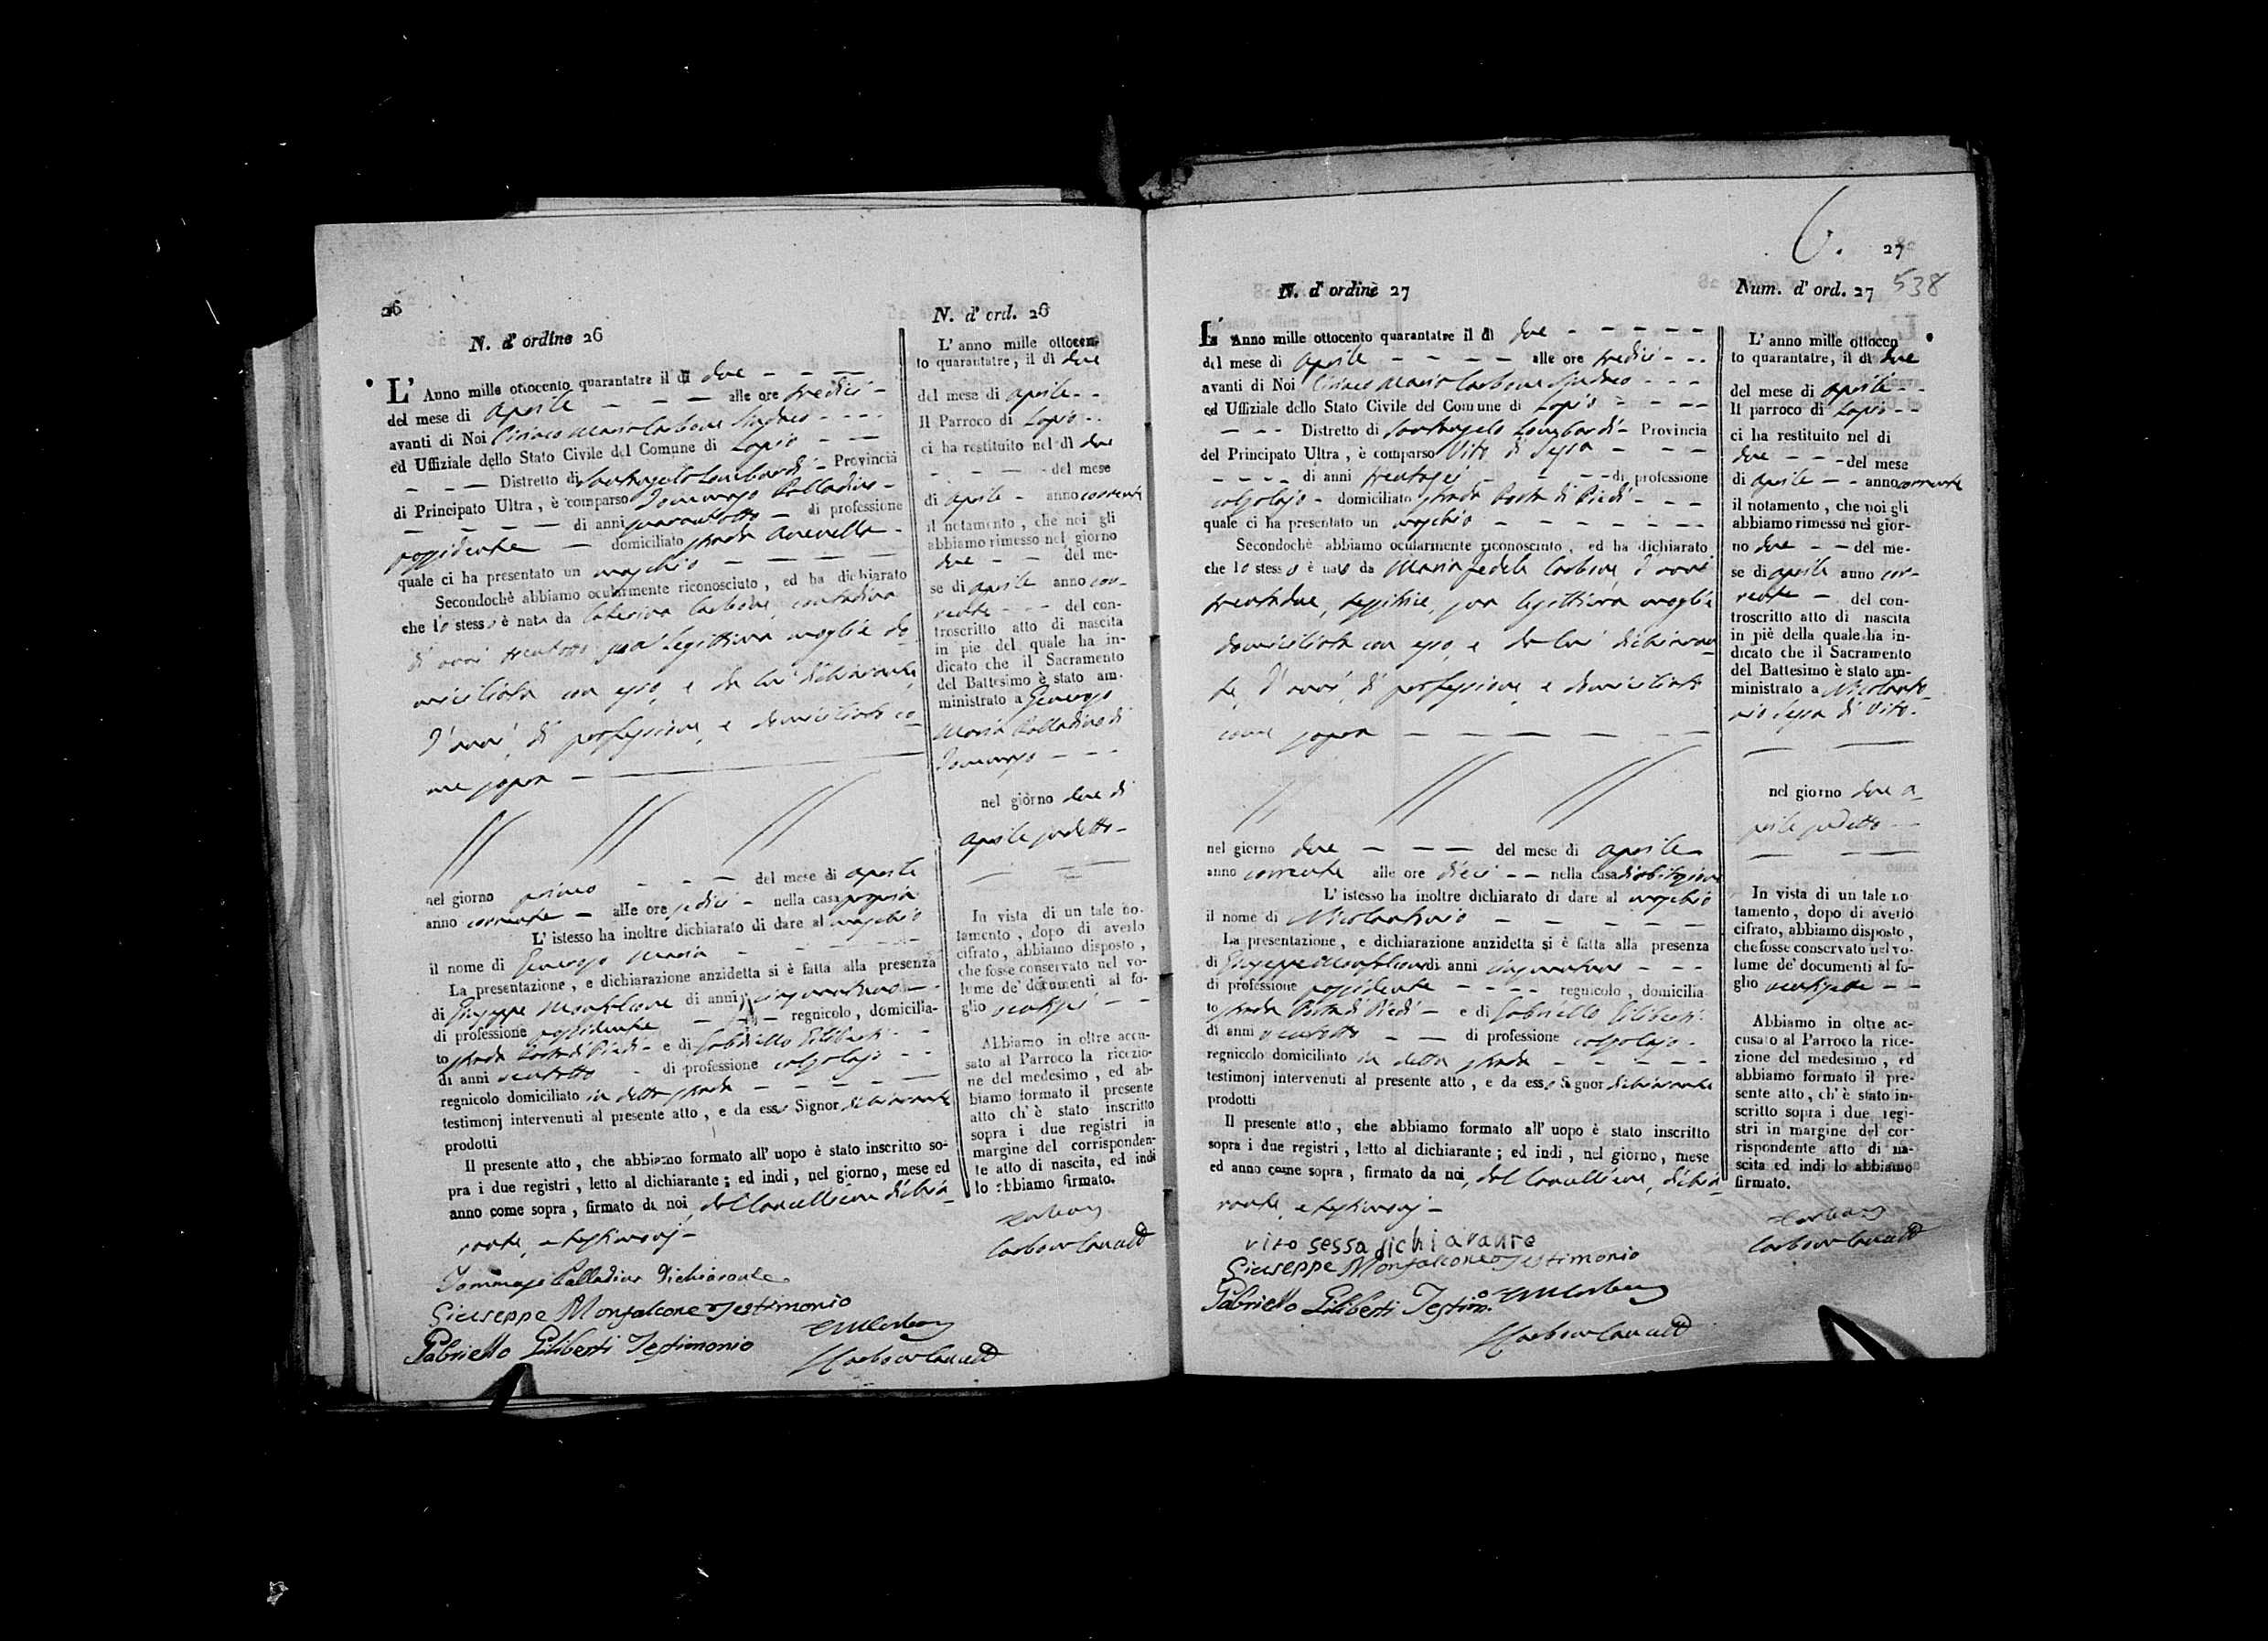 26
N. d' ordine 26
L' Anno mille ottocento quarantatre il dì due
del mese di Aprile alle ore tredici
avanti di Noi Ciriaco Maria Carbone Sindaco
ed Uffiziale dello Stato Civile del Comune di Lapio
Distretto di Santangelo Lombardi Provincia
di Principato Ultra , è comparso Tommaso Palladino
di anni quarantotto di professione
possidente domiciliato strada
quale ci ha presentato un maschio
Secondochè abbiamo ocularmente riconosciuto , ed ha dichiarato
che lo stesso è nato da Caterina Carbone, contadina
d' anni trentotto sua legittima moglie do-
miciliata con esso, e da lui dichiarante,
d' anni, di professione, e domiciliato co-
me sopra
nel giorno primo del mese di Aprile
anno corrente alle ore sedici nella casa propria
L' istesso ha inoltre dichiarato di dare al maschio
il nome di Gennaro Maria
La presentazione , e dichiarazione anzidetta si è fatta alla presenza
di Giuseppe Monfalcone di anni cinquantuno
di professione possidente regnicolo , domicilia-
to strada Porta di Piedi e di Gabriello Giliberti
di anni ventotto di professione calzolajo
regnicolo domiciliato in detta strada
testimonj intervenuti al presente atto , e da esso Signor dichiarante
prodotti
Il presente atto , che abbiamo formato all' uopo è stato inscritto so-
pra i due registri , letto al dichiarante ; ed indi , nel giorno, mese ed
anno come sopra , firmato da noi, dal Cancelliere, dichia-
rante, e testimonj
Tommaso Palladino Dichiarante
Giuseppe Monfalcone Testimonio
Gabriello Giliberti Testimonio
CMCarbone
Carbone Canc
N. d' ord. 26
L' anno mille ottocen-
to quarantatre, il dì due
del mese di Aprile
Il Parroco di Lapio
ci ha restituito nel dì due
del mese
di Aprile anno corrente
il notamento , che noi gli
abbiamo rimesso nel giorno
due del me-
se di Aprile anno cor-
rente del con-
troscritto atto di nascita
in piè del quale ha in-
dicato che il Sacramento
del Battesimo è stato am-
ministrato a Gennaro
Maria Palladino di
Tommaso
nel giorno due di
Aprile sudetto
In vista di un tale no-
tamento , dopo di averlo
cifrato, abbiamo disposto ,
che fosse conservato nel vo-
lume de' documenti al fo-
glio ventisei
Abbiamo in oltre accu-
sato al Parroco la ricezio-
ne del medesimo , ed ab-
biamo formato il presente
atto ch' è stato inscritto
sopra i due registri in
margine del corrisponden-
te atto di nascita, ed indi
lo abbiamo firmato.
Carbone
Carbone Canc
6.
27
538
N. d' ordine 27
L' Anno mille ottocento quarantatre il dì due
del mese di Aprile alle ore tredici
avanti di Noi Ciriaco Maria Carbone Sindaco
ed Uffiziale dello Stato Civile del Comune di Lapio
Distretto di Santangelo Lombardi Provincia
del Principato Ultra , è comparso Vito di Sessa
di anni trentasei di professione
calzolajo domiciliato strada Porta di Piedi
quale ci ha presentato un maschio
Secondochè abbiamo ocularmente riconosciuto , ed ha dichiarato
che lo stesso è nato da Maria Fedele Carbone, d' anni
trentadue, sua legittima moglie
domiciliata con esso, e da lui dichiaran-
te, d' anni, di professione, e domiciliato
come sopra
nel giorno due del mese di Aprile
anno corrente alle ore dieci nella casa di abitazione
L' istesso ha inoltre dichiarato di dare al maschio
il nome di Nicolantonio
La presentazione , e dichiarazione anzidetta si è fatta alla presenza
di Giuseppe Monfalcone di anni cinquantuno
di professione possidente regnicolo , domicilia-
to strada Porta di Piedi e di Gabriello Giliberti
di anni ventotto di professione calzolajo
regnicolo domiciliato in detta strada
testimonj intervenuti al presente atto , e da esso Signor dichiarante
prodotti
Il presente atto , che abbiamo formato all' uopo è stato inscritto
sopra i due registri , letto al dichiarante ; ed indi , nel giorno , mese
ed anno come sopra , firmato da noi, dal Cancelliere, dichia-
rante, e testimonj
vito sessa dichiarante
Giuseppe Monfalcone Testimonio
Gabriello Giliberti Testimo. CMCarbone
Carbone Canc
Num. d' ord. 27
L' anno mille ottocen
to quarantatre, il dì due
del mese di Aprile
Il parroco di Lapio
ci ha restituito nel di
due del mese
di Aprile anno corrente
il notamento , che noi gli
abbiamo rimesso nel gior-
no due del me-
se di Aprile anno cor-
rente del con-
troscritto atto di nascita
in piè della quale ha in-
dicato che il Sacramento
del Battesimo è stato am-
ministrato a Nicolanto-
nio Sessa di Vito
nel giorno due A-
prile sudetto
In vista di un tale no-
tamento , dopo di averlo
cifrato, abbiamo disposto ,
che fosse conservato nel vo-
lume de' documenti al fo-
glio ventisette
Abbiamo in oltre ac-
cusato al Parroco la rice-
zione del medesimo , ed
abbiamo formato il pre-
sente atto , ch' è stato in-
scritto sopra i due regi-
stri in margine del cor-
rispondente atto di na-
scita ed indi lo abbiamo
firmato.
Carbone
Carbone Canc